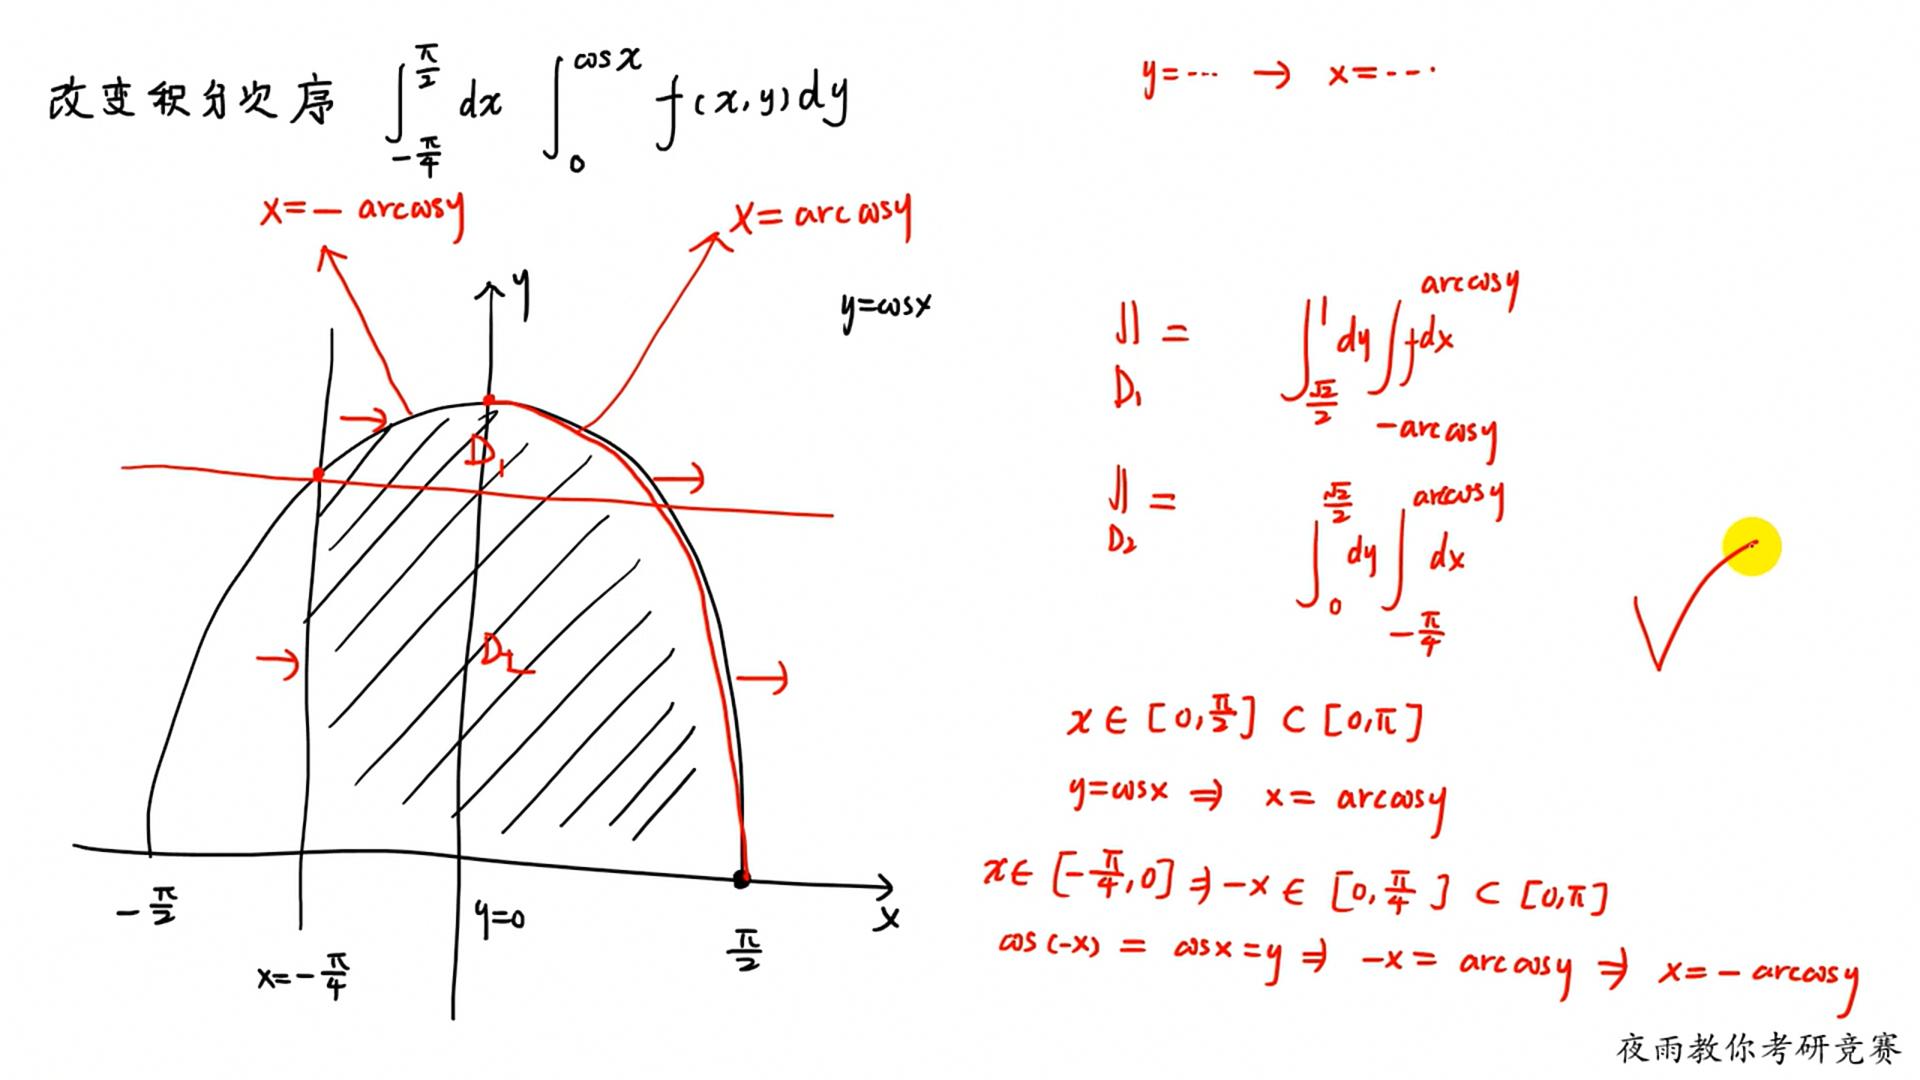 改变积分次序 ∫_{-π/4}^{π/2} dx ∫_0^{cosx} f(x,y)dy
y=··· → x=···.
x=- arccosy
x= arccosy
y
y=cosx
D₁
D₂
-π/2
x=-π/4
y=0
π/2
x
∬_{D₁} = ∫_{√2/2}^{1} dy ∫_{-arccosy}^{arccosy} fdx
∬_{D₂} = ∫_0^{√2/2} dy ∫_{-π/4}^{arccosy} dx
x∈[0,π/2] ⊂ [0,π]
y=cosx ⇒ x= arccosy
x∈[-π/4,0] ⇒ -x∈[0,π/4] ⊂ [0,π]
cos(-x) = cosx=y ⇒ -x= arccosy ⇒ x=- arccosy
夜雨教你考研竞赛